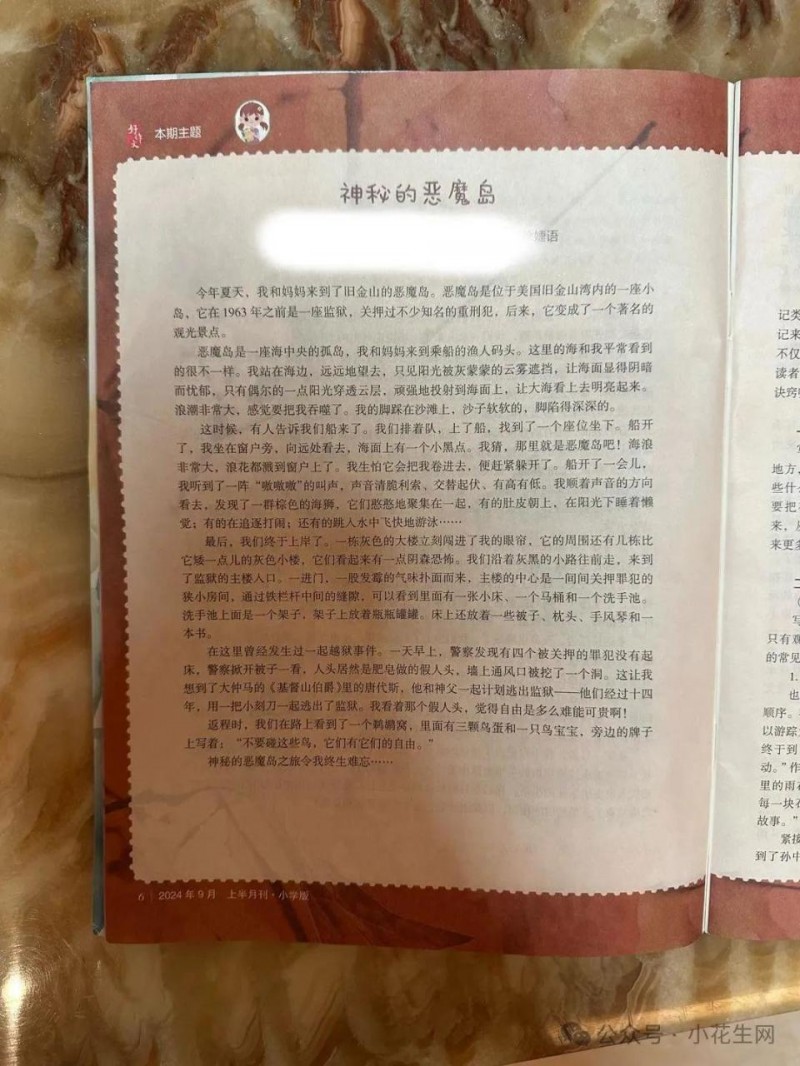 好作文
本期主题
神秘的恶魔岛
语
今年夏天，我和妈妈来到了旧金山的恶魔岛。恶魔岛是位于美国旧金山湾内的一座小
岛，它在1963年之前是一座监狱，关押过不少知名的重刑犯，后来，它变成了一个著名的
观光景点。
恶魔岛是一座海中央的孤岛，我和妈妈来到乘船的渔人码头。这里的海和我平常看到
的很不一样。我站在海边，远远地望去，只见阳光被灰蒙蒙的云雾遮挡，让海面显得阴暗
而忧郁，只有偶尔的一点阳光穿透云层，顽强地投射到海面上，让大海看上去明亮起来。
浪潮非常大，感觉要把我吞噬了。我的脚踩在沙滩上，沙子软软的，脚陷得深深的。
这时候，有人告诉我们船来了。我们排着队，上了船，找到了一个座位坐下。船开
了，我坐在窗户旁，向远处看去，海面上有一个小黑点。我猜，那里就是恶魔岛吧！海浪
非常大，浪花都溅到窗户上了。我生怕它会把我卷进去，便赶紧躲开了。船开了一会儿，
我听到了一阵“嗷嗷嗷”的叫声，声音清脆利索、交替起伏、有高有低。我顺着声音的方向
看去，发现了一群棕色的海狮，它们憨憨地聚集在一起，有的肚皮朝上，在阳光下睡着懒
觉；有的在追逐打闹；还有的跳入水中飞快地游泳……
最后，我们终于上岸了。一栋灰色的大楼立刻闯进了我的眼帘，它的周围还有几栋比
它矮一点儿的灰色小楼，它们看起来有一点阴森恐怖。我们沿着灰黑的小路往前走，来到
了监狱的主楼入口。一进门，一股发霉的气味扑面而来，主楼的中心是一间间关押罪犯的
狭小房间，通过铁栏杆中间的缝隙，可以看到里面有一张小床、一个马桶和一个洗手池。
洗手池上面是一个架子，架子上放着瓶瓶罐罐。床上还放着一些被子、枕头、手风琴和一
本书。
在这里曾经发生过一起越狱事件。一天早上，警察发现有四个被关押的罪犯没有起
床，警察掀开被子一看，人头居然是肥皂做的假人头，墙上通风口被挖了一个洞。这让我
想到了大仲马的《基督山伯爵》里的唐代斯，他和神父一起计划逃出监狱——他们经过十四
年，用一把小刻刀一起逃出了监狱。我看着那个假人头，觉得自由是多么难能可贵啊！
返程时，我们在路上看到了一个鹈鹕窝，里面有三颗鸟蛋和一只鸟宝宝，旁边的牌子
上写着：“不要碰这些鸟，它们有它们的自由。”
神秘的恶魔岛之旅令我终生难忘……
6 2024年9月 上半月刊·小学版
记类
记来
不仅
读者
诀窍
地方，
些什么
要把
来，
来更多
写
只有观
的常见
1.
也
顺序。
以游踪
终于到
动。”作
里的雨花
每一块石
故事。”
紧接
到了孙中
公众号·小花生网